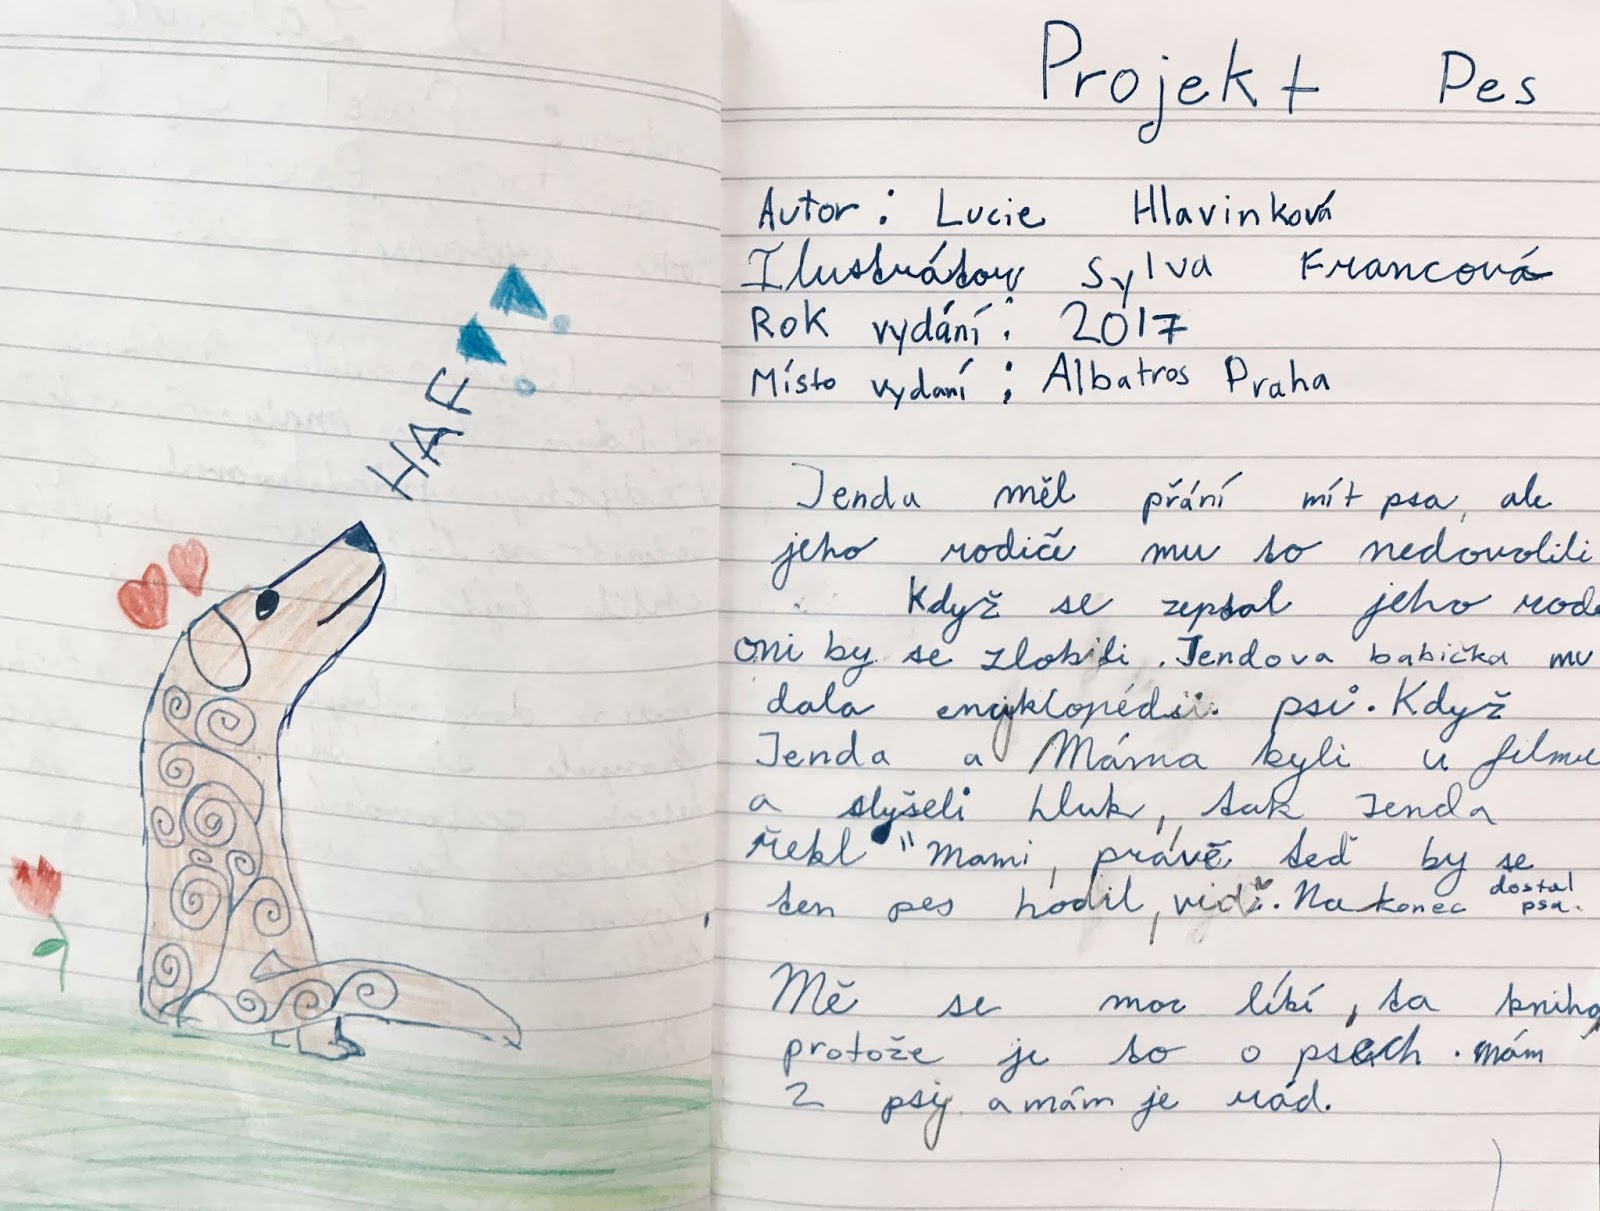 HAF!!
Projekt Pes
Autor: Lucie Hlavinková
Ilustrátor Sylva Francová
Rok vydání: 2017
Místo vydaní: Albatros Praha
Jenda měl přání mít psa, ale
jeho rodiče mu to nedovolili
Když se zeptal jeho rod
oni by se zlobili. Jendova babička mu
dala encyklopédii psů. Když
Jenda a Máma byli u filmu
a slyšeli hluk, tak Jenda
řekl "Mami, právě teď by se
ten pes hodil, viď. Na konec dostal psa.
Mě se moc líbí, ta kniha,
protože je to o psech. mám
2 psy a mám je rád.